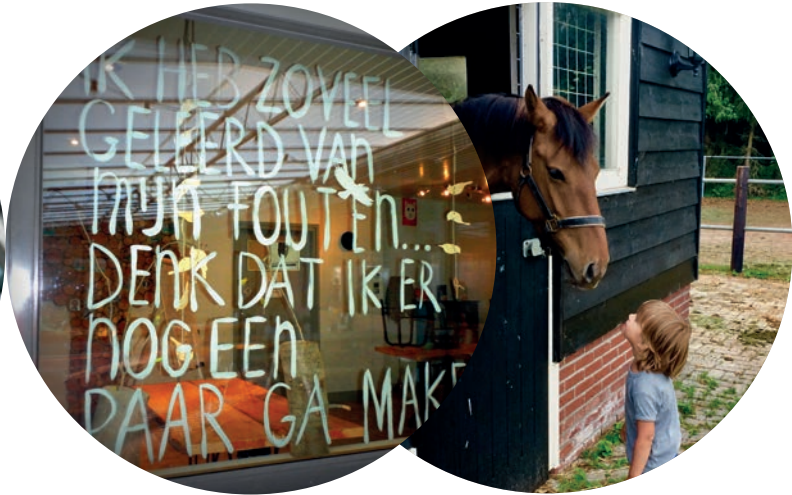 IK HEB ZOVEEL
GELEERD VAN
MIJN FOUTEN...
DENK DAT IK ER
NOG EEN
PAAR GA MAKE